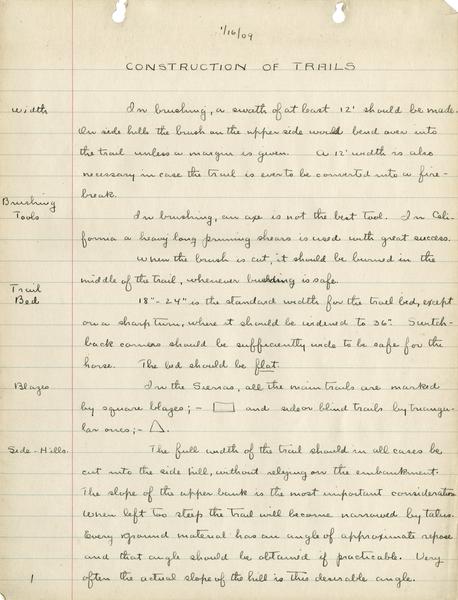 1/16/09
CONSTRUCTION OF TRAILS
Width
In brushing, a swath of at least 12' should be made.
On side hills the brush on the upper side would bend over into
the trail unless a margin is given. A 12' width is also
necessary in case the trail is ever to be converted into a fire-
break.
Brushing
Tools
In brushing, an axe is not the best tool. In Cali-
fornia a heavy long pruning shears is used with great success.
When the brush is cut, it should be burned in the
middle of the trail, whenever burning is safe.
Trail
Bed
18"-24" is the standard width for the trail bed, except
on a sharp turn, where it should be widened to 36". Switch-
back corners should be sufficiently wide to be safe for the
horse. The bed should be flat.
Blazes
In the Sierras, all the main trails are marked
by square blazes; - and side or blind trails by triangu-
lar ones; - .
Side-Hills
The full width of the trail should in all cases be
cut into the side hill, without relying on the embankment.
The slope of the upper bank is the most important consideration
When left too steep the trail will become narrowed by talus.
Every ground material has an angle of approximate repose
and that angle should be obtained if practicable. Very
often the actual slope of the hill is this desirable angle.
1